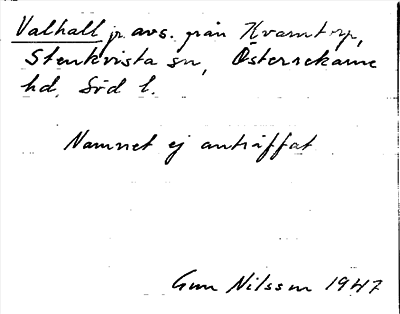 Valhall jr avs. från Kvarntorp,
Stenkvista sn, Österrekarne
hd. Söd l.
Namnet ej anträffat
Gun Nilsson 1947